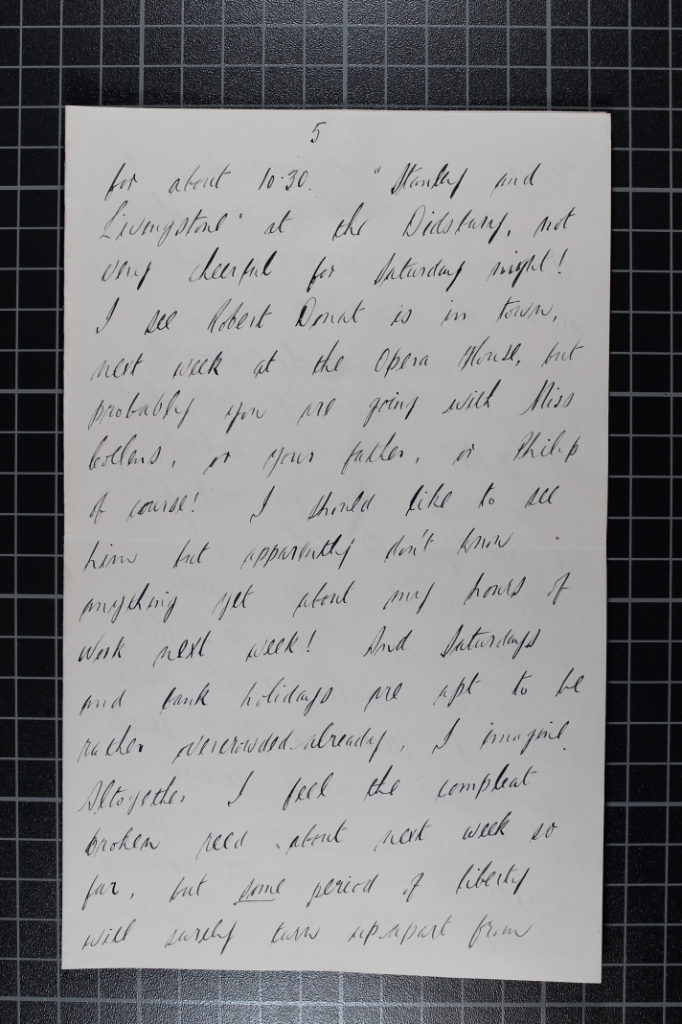 5
for about 10.30. "Stanley and
Livingstone" at the Didsbury, not
very cheerful for Saturday night!
I see Robert Donat is in town,
next week at the Opera House, but
probably you are going with Miss
Collens, or your father, or Philip
of course! I should like to see
him but apparently don't know
anything yet about my hours of
work next week! And Saturdays
and bank holidays are apt to be
rather overcrowded already, I imagine.
Altogether I feel the compleat
broken reed about next week so
far, but some period of liberty
will surely turn up apart from